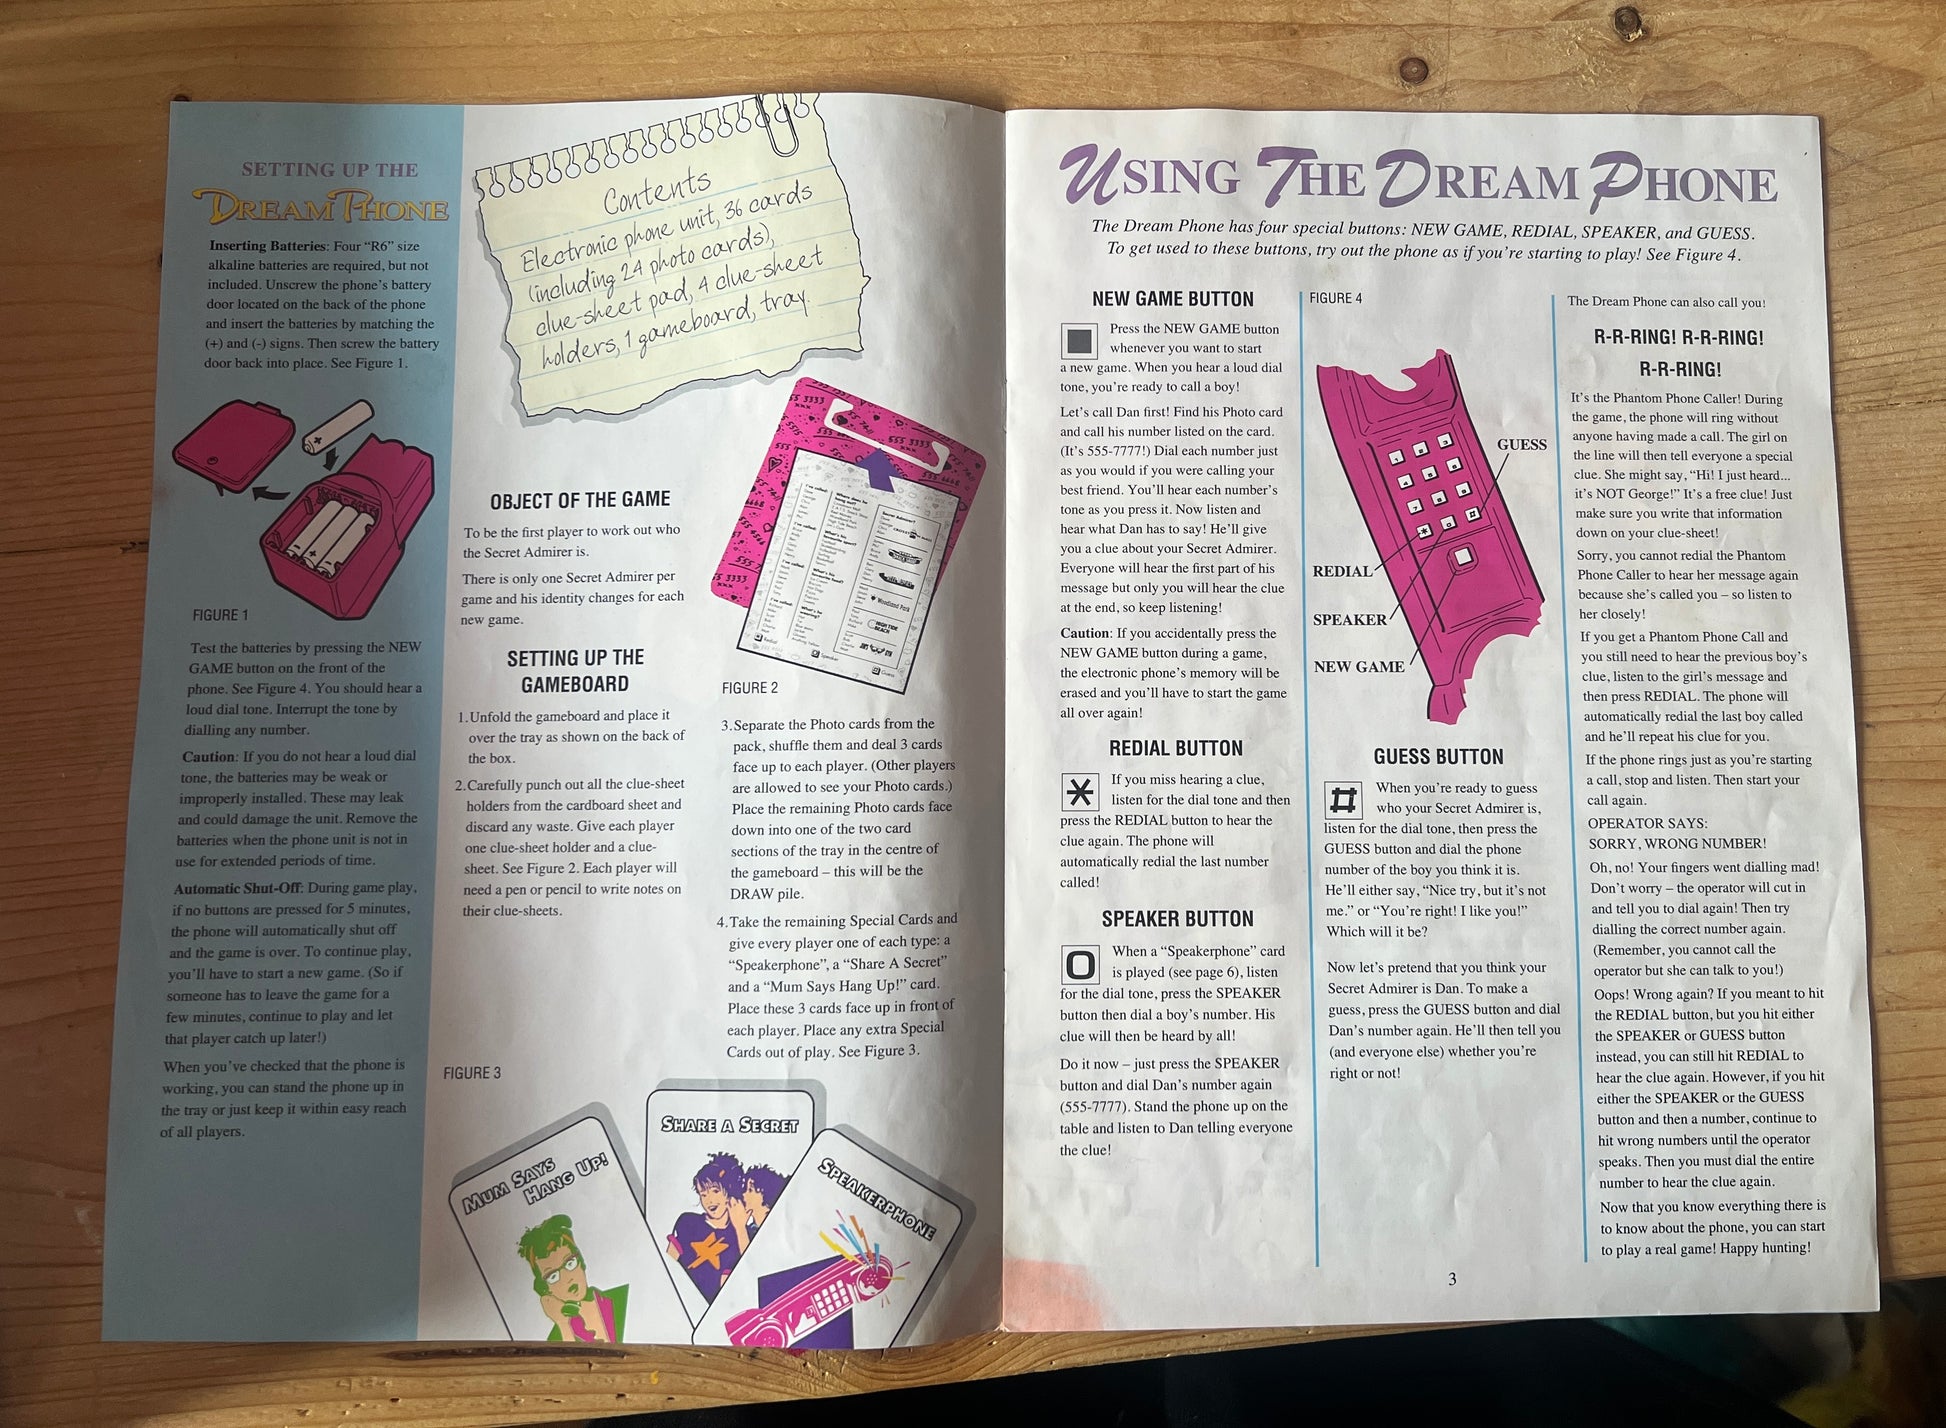 SETTING UP THE
DREAM PHONE
Inserting Batteries: Four “R6” size
alkaline batteries are required, but not
included. Unscrew the phone’s battery
door located on the back of the phone
and insert the batteries by matching the
(+) and (-) signs. Then screw the battery
door back into place. See Figure 1.
FIGURE 1
Test the batteries by pressing the NEW
GAME button on the front of the
phone. See Figure 4. You should hear a
loud dial tone. Interrupt the tone by
dialling any number.
Caution: If you do not hear a loud dial
tone, the batteries may be weak or
improperly installed. These may leak
and could damage the unit. Remove the
batteries when the phone unit is not in
use for extended periods of time.
Automatic Shut-Off: During game play,
if no buttons are pressed for 5 minutes,
the phone will automatically shut off
and the game is over. To continue play,
you’ll have to start a new game. (So if
someone has to leave the game for a
few minutes, continue to play and let
that player catch up later!)
When you’ve checked that the phone is
working, you can stand the phone up in
the tray or just keep it within easy reach
of all players.
Contents
Electronic phone unit, 36 cards
(including 24 photo cards),
clue-sheet pad, 4 clue-sheet
holders, 1 gameboard, tray.
OBJECT OF THE GAME
To be the first player to work out who
the Secret Admirer is.
There is only one Secret Admirer per
game and his identity changes for each
new game.
SETTING UP THE
GAMEBOARD
1. Unfold the gameboard and place it
over the tray as shown on the back of
the box.
2. Carefully punch out all the clue-sheet
holders from the cardboard sheet and
discard any waste. Give each player
one clue-sheet holder and a clue-
sheet. See Figure 2. Each player will
need a pen or pencil to write notes on
their clue-sheets.
555 3333
Secret Admirer?
Woodland Park
HIGH TIDE
BEACH
Redial
Speaker
Guess
FIGURE 2
3. Separate the Photo cards from the
pack, shuffle them and deal 3 cards
face up to each player. (Other players
are allowed to see your Photo cards.)
Place the remaining Photo cards face
down into one of the two card
sections of the tray in the centre of
the gameboard – this will be the
DRAW pile.
4. Take the remaining Special Cards and
give every player one of each type: a
“Speakerphone”, a “Share A Secret”
and a “Mum Says Hang Up!” card.
Place these 3 cards face up in front of
each player. Place any extra Special
Cards out of play. See Figure 3.
FIGURE 3
MUM SAYS
HANG UP!
SHARE A SECRET
SPEAKERPHONE
USING THE DREAM PHONE
The Dream Phone has four special buttons: NEW GAME, REDIAL, SPEAKER, and GUESS.
To get used to these buttons, try out the phone as if you’re starting to play! See Figure 4.
NEW GAME BUTTON
Press the NEW GAME button
whenever you want to start
a new game. When you hear a loud dial
tone, you’re ready to call a boy!
Let’s call Dan first! Find his Photo card
and call his number listed on the card.
(It’s 555-7777!) Dial each number just
as you would if you were calling your
best friend. You’ll hear each number’s
tone as you press it. Now listen and
hear what Dan has to say! He’ll give
you a clue about your Secret Admirer.
Everyone will hear the first part of his
message but only you will hear the clue
at the end, so keep listening!
Caution: If you accidentally press the
NEW GAME button during a game,
the electronic phone’s memory will be
erased and you’ll have to start the game
all over again!
REDIAL BUTTON
If you miss hearing a clue,
listen for the dial tone and then
press the REDIAL button to hear the
clue again. The phone will
automatically redial the last number
called!
SPEAKER BUTTON
O
When a “Speakerphone” card
is played (see page 6), listen
for the dial tone, press the SPEAKER
button then dial a boy’s number. His
clue will then be heard by all!
Do it now – just press the SPEAKER
button and dial Dan’s number again
(555-7777). Stand the phone up on the
table and listen to Dan telling everyone
the clue!
FIGURE 4
1 2 3
4 5 6
7 8 9
* 0 #
GUESS
REDIAL
SPEAKER
NEW GAME
GUESS BUTTON
#
When you’re ready to guess
who your Secret Admirer is,
listen for the dial tone, then press the
GUESS button and dial the phone
number of the boy you think it is.
He’ll either say, “Nice try, but it’s not
me.” or “You’re right! I like you!”
Which will it be?
Now let’s pretend that you think your
Secret Admirer is Dan. To make a
guess, press the GUESS button and dial
Dan’s number again. He’ll then tell you
(and everyone else) whether you’re
right or not!
The Dream Phone can also call you!
R-R-RING! R-R-RING!
R-R-RING!
It’s the Phantom Phone Caller! During
the game, the phone will ring without
anyone having made a call. The girl on
the line will then tell everyone a special
clue. She might say, “Hi! I just heard...
it’s NOT George!” It’s a free clue! Just
make sure you write that information
down on your clue-sheet!
Sorry, you cannot redial the Phantom
Phone Caller to hear her message again
because she’s called you – so listen to
her closely!
If you get a Phantom Phone Call and
you still need to hear the previous boy’s
clue, listen to the girl’s message and
then press REDIAL. The phone will
automatically redial the last boy called
and he’ll repeat his clue for you.
If the phone rings just as you’re starting
a call, stop and listen. Then start your
call again.
OPERATOR SAYS:
SORRY, WRONG NUMBER!
Oh, no! Your fingers went dialling mad!
Don’t worry – the operator will cut in
and tell you to dial again! Then try
dialling the correct number again.
(Remember, you cannot call the
operator but she can talk to you!)
Oops! Wrong again? If you meant to hit
the REDIAL button, but you hit either
the SPEAKER or GUESS button
instead, you can still hit REDIAL to
hear the clue again. However, if you hit
either the SPEAKER or the GUESS
button and then a number, continue to
hit wrong numbers until the operator
speaks. Then you must dial the entire
number to hear the clue again.
Now that you know everything there is
to know about the phone, you can start
to play a real game! Happy hunting!
3